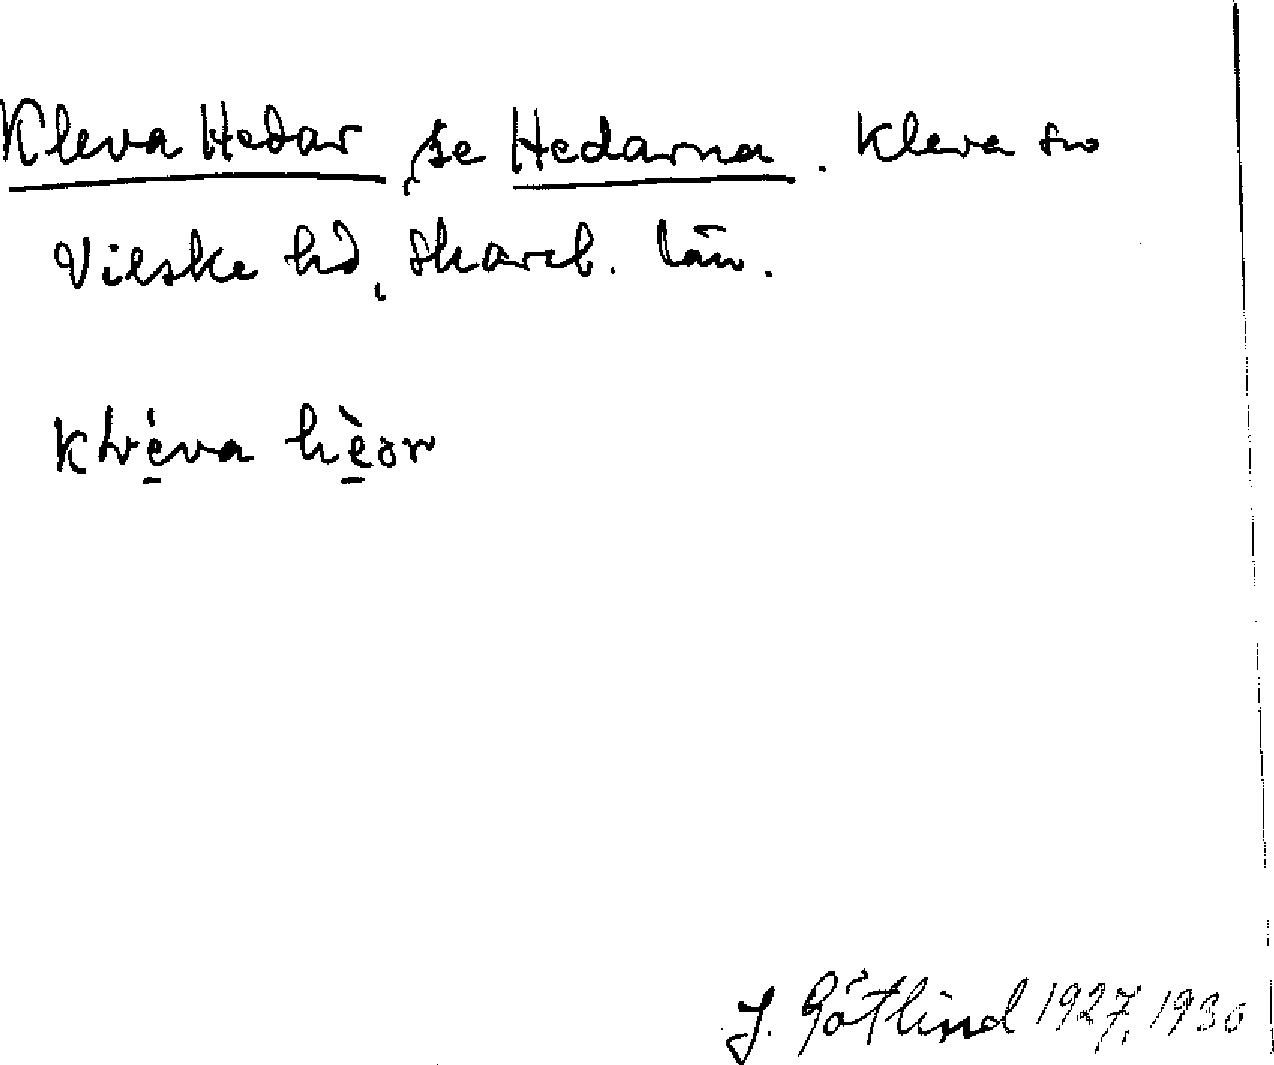 Kleva Hedar, se Hedarna. Kleva sn
Vilske hd, Skarab. län.
J. Götlind 1927, 1930